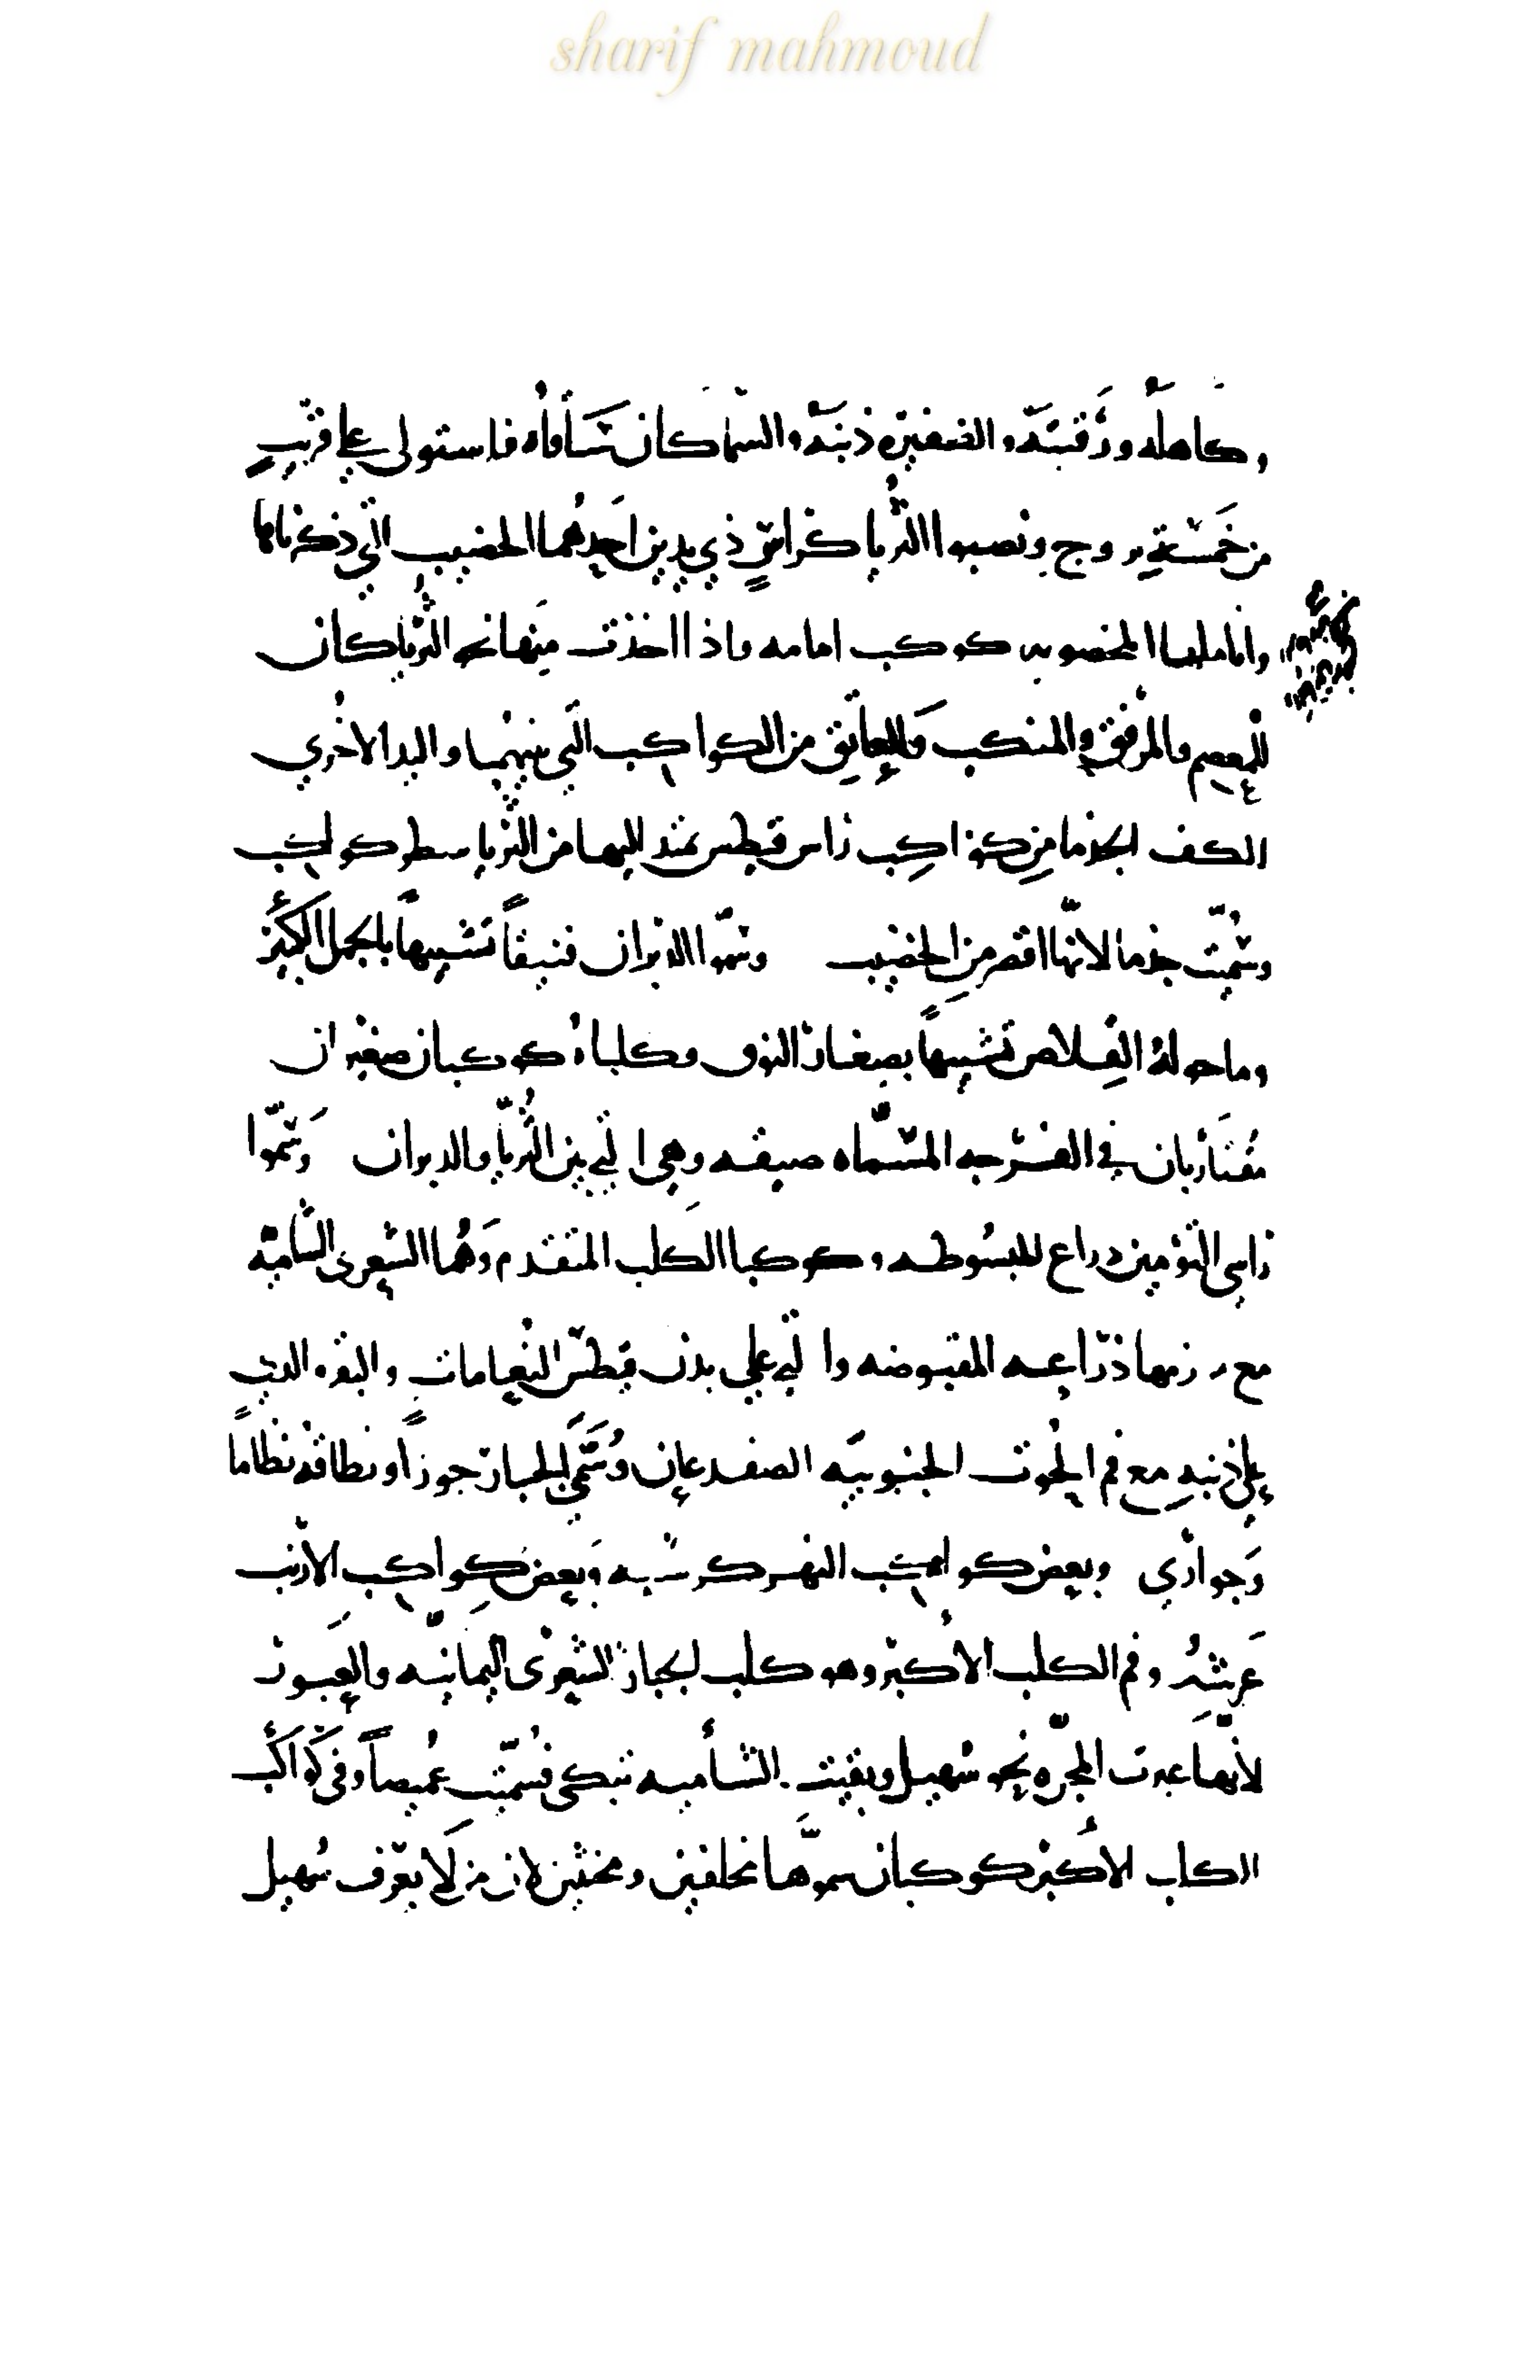 sharif mahmoud
وكاهله ورقبته والضفيرة ذنبه والسماكان ساقاه فاستولى على قريب
من خمسة بروج ونصبوا الثريا كراس ذي يدين احدهما الخضيب التي ذكرناها
واناملها المخصوبه كوكب امامه واذا اخذت منها نحو الثريا كان
المعصم والمرفق والمنكب والعاتق من الكواكب التي بينهما واليد الاخرى
الكف الجذما من كواكب راس قيطس تمتد اليها من الثريا سطر كواكب
وسميت جذما لانها اقصر من الخضيب وسموا الدبران فنيقاً تشبيهاً بالجمل الكبير
وما حوله القلاص تشبيهاً بصغار النوق وكلباه كوكبان صغيران
متقاربان في الفرجه المسماه ضيقه وهي التي بين الثريا والدبران وسموا
راسي التؤمين ذراع المبسوطه وكوكبا الكلب المتقدم وهما الشعرى الشاميه
مع مرزمها ذراعه المقبوضه والتي علي بدن قيطس النعامات والنيره التي
على ذنبه مع فم الحوت الجنوبيه الضفدعان وسمي الجبار جوزاً ونطاقه نظاماً
وجواري وبعض كواكب النهر كرسيه وبعض كواكب الارنب
عرشه وفم الكلب الأكبر وهو كلب الجبار الشعرى اليمانيه والعبور
لأنها عبرت المجره نحو سهيل وبقيت الشأميه تبكي فسميت غميصاً وفي كواكب
الكلب الأكبر كوكبان سموهما محلفين ومحنثين لان من لا يعرف سهيل